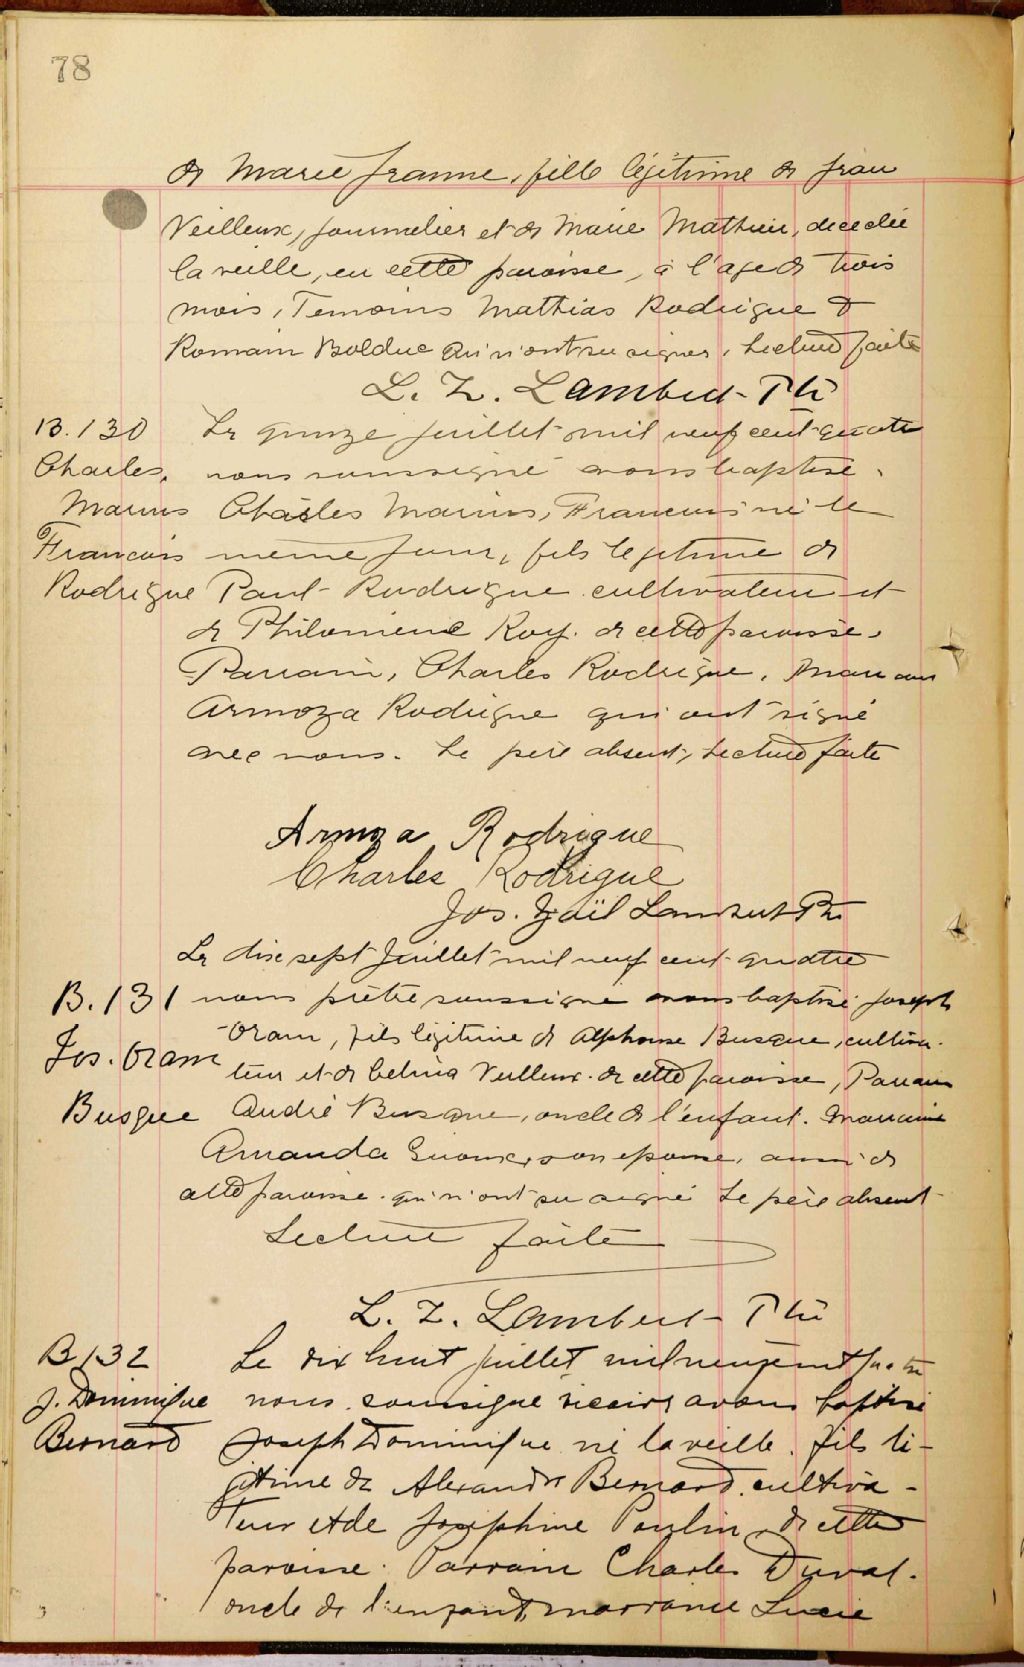 78
de Marie Jeanne, fille légitime de Jean
Veilleux, journalier et de Marie Mathieu, decedée
la veille, en cette paroisse, à l'age de trois
mois, Temoins Mathias Rodrigue &
Romain Bolduc qui n'ont su signer. Lecture faite
L. Z. Lambert Ptr
B. 130
Charles,
Marius
Francois
Rodrigue
Le quinze juillet mil neuf cent quatre
nous soussigné avons baptisé
Charles Marius, Francois né le
meme jour, fils legitime de
Paul Rodrigue cultivateur et
de Philomene Roy. de cette paroisse.
Parrain, Charles Rodrigue, Marraine
Armoza Rodrigue qui ont signé
avec nous. Le père absent, Lecture faite
Armoza Rodrigue
Charles Rodrigue
Jos. Lambert Ptr
B. 131
Jos. Oram
Busque
Le dix sept Juillet mil neuf cent quatre
nous prêtre soussigné avons baptisé Joseph
Oram, fils légitime de Alphonse Busque, cultiva-
teur et de Celina Veilleux de cette paroisse, Parrain
André Busque, oncle de l'enfant. Marraine
Amanda son epouse, aussi de
cette paroisse. qui n'ont su signé Le père absent
Lecture faite
L. Z. Lambert Ptr
B 132
J. Dominique
Bernard
Le dix huit juillet mil neuf cent quatre
nous soussigné vicaire avons baptisé
Joseph Dominique né la veille. fils lé-
gitime de Alexandre Bernard. cultiva-
teur et de Josephine Poulin, de cette
paroisse. Parrain Charles Duval.
oncle de l'enfant, marraine Lucie